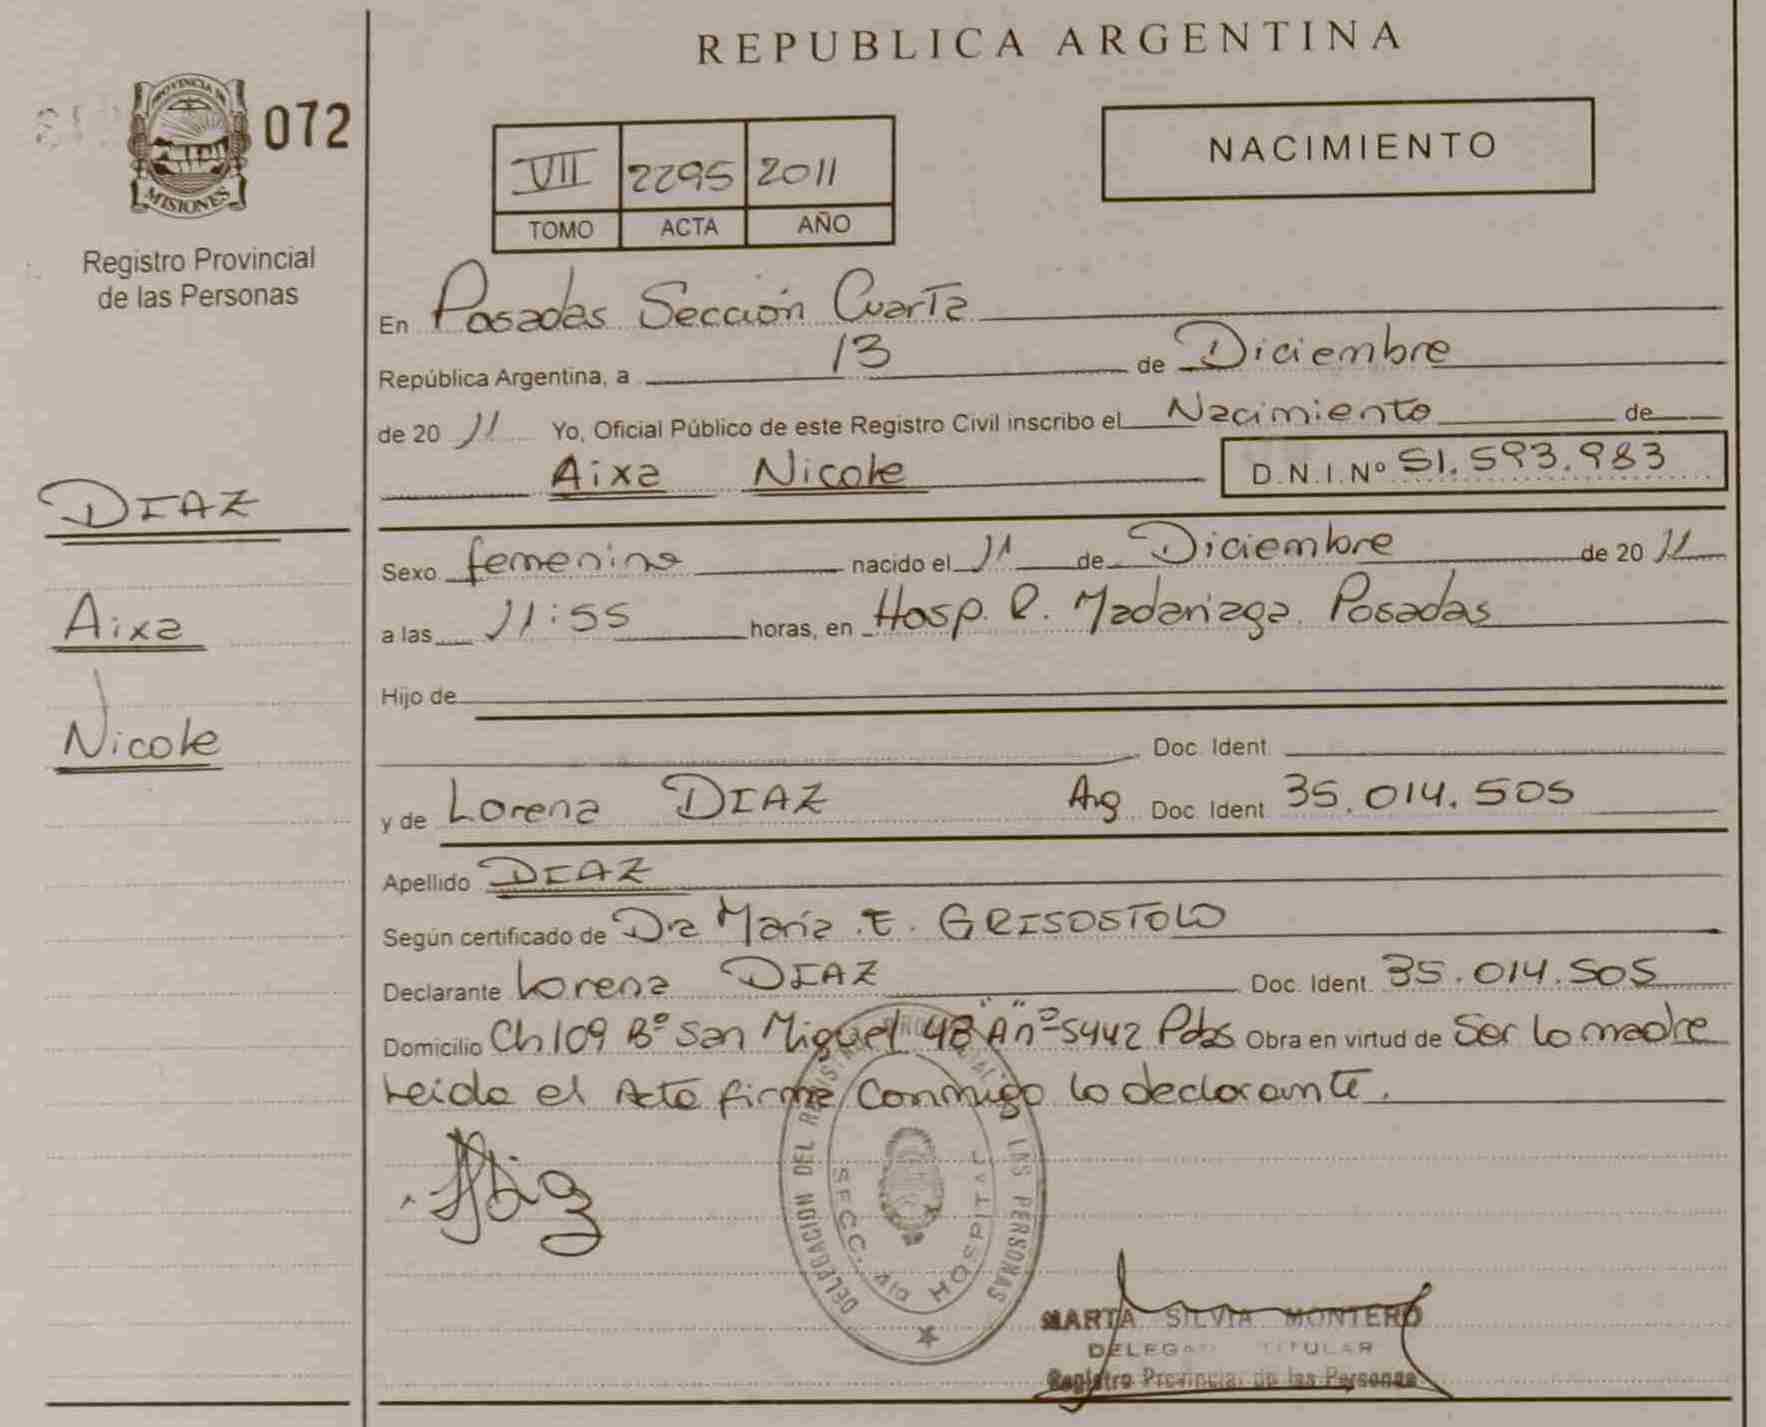 REPUBLICA ARGENTINA
PROVINCIA DE
MISIONES
072
Registro Provincial
de las Personas
NACIMIENTO
VII 2295 2011
TOMO ACTA AÑO
En Posadas Sección Cuarta
República Argentina, a 13 de Diciembre
de 20 11 Yo, Oficial Público de este Registro Civil inscribo el Nacimiento de
Aixa Nicole D.N.I.Nº 51.593.983
DIAZ
Aixa
Nicole
Sexo femenino nacido el 11 de Diciembre de 20 11
a las 11:55 horas, en Hosp. R. Madariaga. Posadas
Hijo de
Doc. Ident.
y de Lorena DIAZ Arg Doc. Ident. 35.014.505
Apellido DIAZ
Según certificado de Dra María E. GRISOSTOLO
Declarante Lorena DIAZ Doc. Ident. 35.014.505
Domicilio Ch 109 Bº San Miguel 48 "A" nº 5442 Pdas Obra en virtud de Ser la madre
Leida el Acta firma Conmigo la declarante.
DELEGACION DEL REGISTRO PROVINCIAL DE LAS PERSONAS
SECC. HOSPITAL
MARTA SILVIA MONTERO
TITULAR
Registro Provincial de las Personas